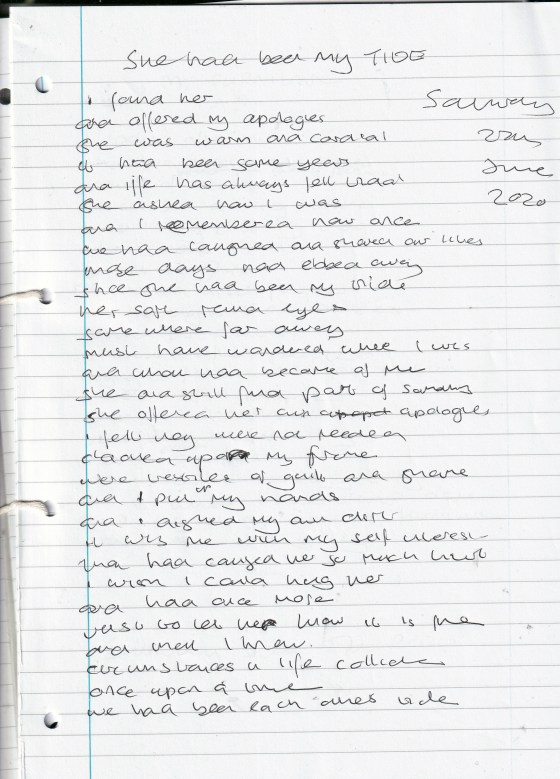 She had been my TIDE
i found her
and offered my apologies
she was warm and cordial
it had been some years
and life has always felt
she asked how I was
and I remembered how once
we had laughed and shared our lives
those days had ebbed away
since she had been my tide
her soft kind eyes
somewhere far away
must have wondered where I was
and what had become of me
she did still find part of
she offered her own apologies
i felt they were not needed
upon my frame
were of guilt and shame
and I put up my hands
and i my own
it was me with my self interest
that had caused her so much hurt
i wish I could hug her
and had once more
just to let her know it is me
and that I know.
circumstances in life collide
once upon a time
we had been each others tide
Saturday
June
2020